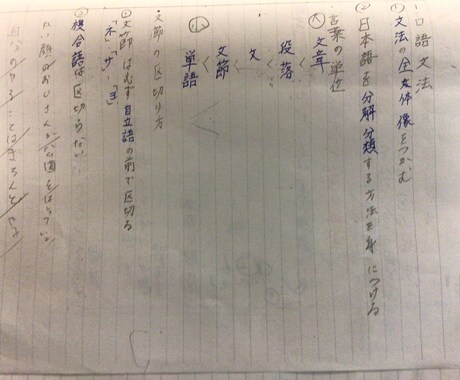 口語文法
① 文法の全体像をつかむ
② 日本語を分解分類する方法を身につける
言葉の単位
大 文章
段落
文
文節
小 単語
・文節の区切り方
① 文節は必ず自立語の前で区切る
「ネ・サ・ヨ」
② 複合語は区切らない
顔のおじさんが/公園を/
自分の/やることは/きちんと/